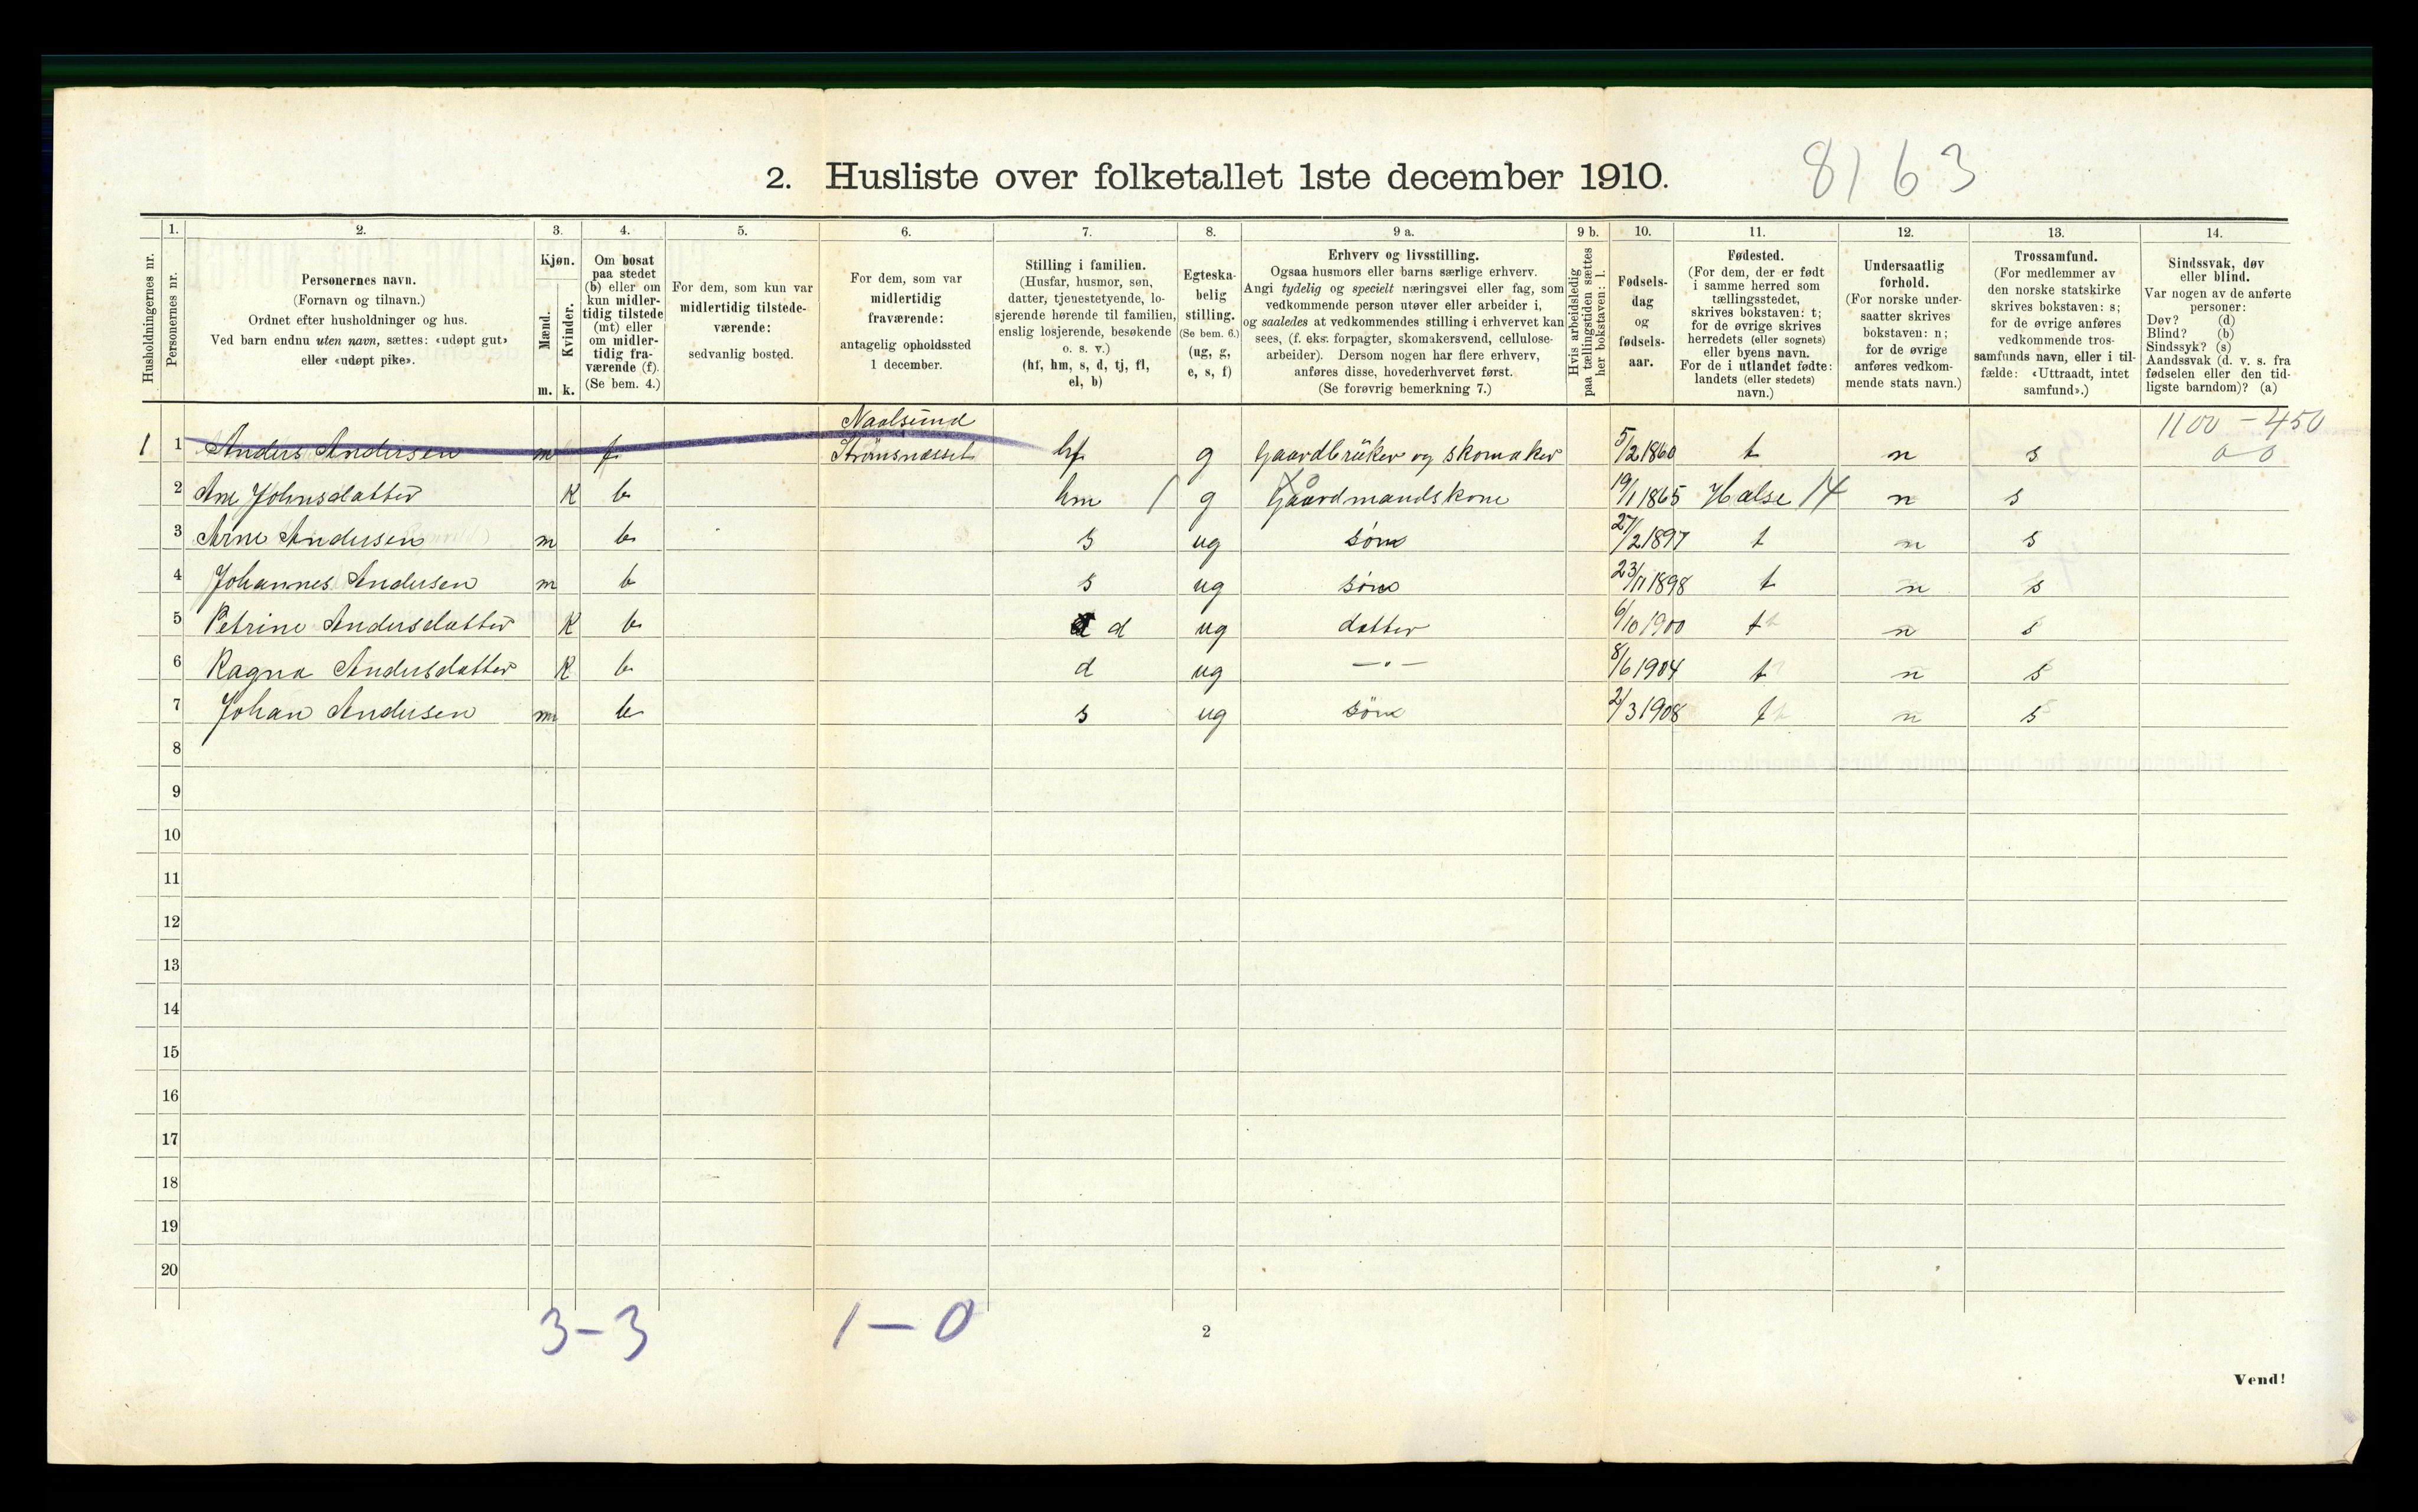 2. Husliste over folketallet 1ste december 1910.
8163
Husholdningernes nr.
1.
Personernes nr.
2.
Personernes navn.
(Fornavn og tilnavn.)
Ordnet efter husholdninger og hus.
Ved barn endnu uten navn, sættes: «udøpt gut»
eller «udøpt pike».
3.
Kjøn.
Mænd.
m.
Kvinder.
k.
4.
Om bosat
paa stedet
(b) eller om
kun midler-
tidig tilstede
(mt) eller
om midler-
tidig fra-
værende (f).
(Se bem. 4.)
5.
For dem, som kun var
midlertidig tilstede-
værende:
sedvanlig bosted.
6.
For dem, som var
midlertidig
fraværende:
antagelig opholdssted
1 december.
7.
Stilling i familien.
(Husfar, husmor, søn,
datter, tjenestetyende, lo-
sjerende hørende til familien,
enslig losjerende, besøkende
o. s. v.)
(hf, hm, s, d, tj, fl,
el, b)
8.
Egteska-
belig
stilling.
(Se bem. 6.)
(ug, g,
e, s, f)
9 a.
Erhverv og livsstilling.
Ogsaa husmors eller barns særlige erhverv.
Angi tydelig og specielt næringsvei eller fag, som
vedkommende person utøver eller arbeider i,
og saaledes at vedkommendes stilling i erhvervet kan
sees, (f. eks. forpagter, skomakersvend, cellulose-
arbeider). Dersom nogen har flere erhverv,
anføres disse, hovederhvervet først.
(Se forøvrig bemerkning 7.)
9 b.
Hvis arbeidsledig
paa tællingstiden sættes
her bokstaven: l.
10.
Fødsels-
dag
og
fødsels-
aar.
11.
Fødested.
(For dem, der er født
i samme herred som
tællingsstedet,
skrives bokstaven: t;
for de øvrige skrives
herredets (eller sognets)
eller byens navn.
For de i utlandet fødte:
landets (eller stedets)
navn.)
12.
Undersaatlig
forhold.
(For norske under-
saatter skrives
bokstaven: n;
for de øvrige
anføres vedkom-
mende stats navn.)
13.
Trossamfund.
(For medlemmer av
den norske statskirke
skrives bokstaven: s;
for de øvrige anføres
vedkommende tros-
samfunds navn, eller i til-
fælde: «Uttraadt, intet
samfund».)
14.
Sindssvak, døv
eller blind.
Var nogen av de anførte
personer:
Døv? (d)
Blind? (b)
Sindssyk? (s)
Aandssvak (d. v. s. fra
fødselen eller den tid-
ligste barndom)? (a)
Naalsund 1100 - 450
1 1 Anders Andersen m f Strömsnesset hf g Gaardbrüker og skomaker 5/2 1860 t n s 0 0
2 Ane Johnsdatter K b hm / g Gaardmandskone 19/1 1865 Halse 14 n s
3 Arne Andersen m b s ug søn 27/2 1897 t n s
4 Johannes Andersen m b s ug søn 23/11 1898 t n s
5 Petrine Andersdatter K b d ug datter 6/10 1900 t n s
6 Ragna Andersdatter K b d ug —"— 8/6 1904 t n s
7 Johan Andersen m b s ug søn 2/3 1908 t n s
8
9
10
11
12
13
14
15
16
17
18
19
20
3-3 1-0
2
Vend!